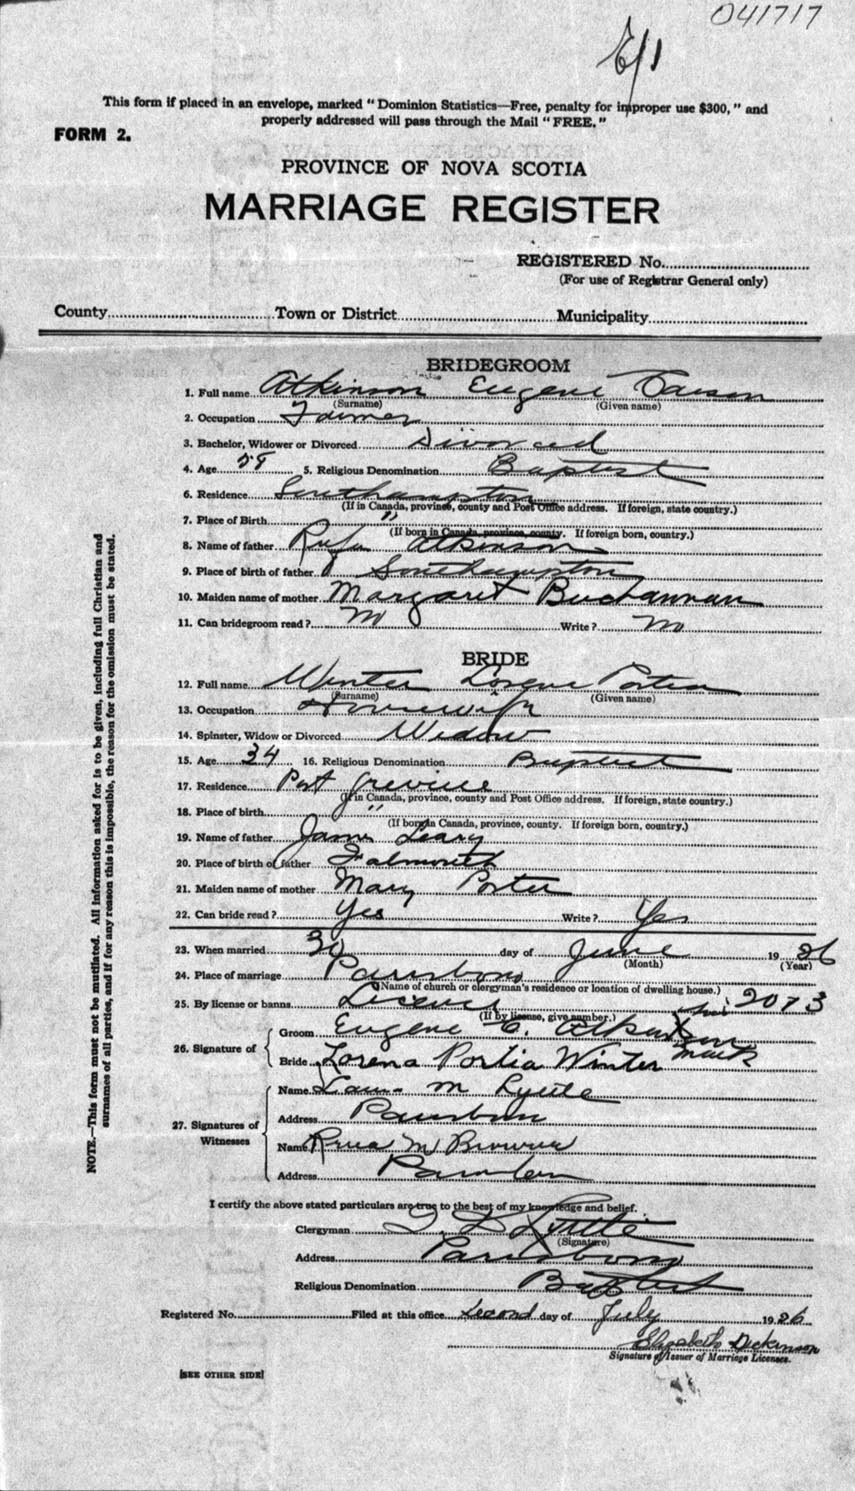 041717
E/1
This form if placed in an envelope, marked "Dominion Statistics—Free, penalty for improper use $300," and
properly addressed will pass through the Mail "FREE."
FORM 2.
PROVINCE OF NOVA SCOTIA
MARRIAGE REGISTER
REGISTERED No.
(For use of Registrar General only)
County Town or District Municipality
BRIDEGROOM
1. Full name Atkinson Eugene
(Surname) (Given name)
2. Occupation Farmer
3. Bachelor, Widower or Divorced Divorced
4. Age 5. Religious Denomination Baptist
6. Residence Southampton
(If in Canada, province, county and Post Office address. If foreign, state country.)
7. Place of Birth "
(If born in Canada, province, county. If foreign born, country.)
8. Name of father Rufus Atkinson
9. Place of birth of father Southampton
10. Maiden name of mother Margaret Buchannan
11. Can bridegroom read? no Write? no
BRIDE
12. Full name Winter Lorena Portia
(Surname) (Given name)
13. Occupation Housewife
14. Spinster, Widow or Divorced Widow
15. Age 34 16. Religious Denomination Baptist
17. Residence Port Greville
(If in Canada, province, county and Post Office address. If foreign, state country.)
18. Place of birth "
(If born in Canada, province, county. If foreign born, country.)
19. Name of father James Leary
20. Place of birth of father Falmouth
21. Maiden name of mother Mary Porter
22. Can bride read? Yes Write? Yes
23. When married 30 day of June 1926
(Month) (Year)
24. Place of marriage Parrsboro
(Name of church or clergyman's residence or location of dwelling house.)
25. By license or banns License 2073
(If by license, give number.)
26. Signature of Groom Eugene C. Atkinson his X mark
Bride Lorena Portia Winter
27. Signatures of Witnesses
Name M Lyttle
Address Parrsboro
Name M Browne
Address Parrsboro
I certify the above stated particulars are true to the best of my knowledge and belief.
Clergyman Lyttle
(Signature)
Address Parrsboro
Religious Denomination Baptist
Registered No. Filed at this office second day of July 1926
Elizabeth Dickinson
Signature of Issuer of Marriage Licenses.
[SEE OTHER SIDE]
NOTE.—This form must not be mutilated. All information asked for is to be given, including full Christian and
surnames of all parties, and if for any reason this is impossible, the reason for the omission must be stated.